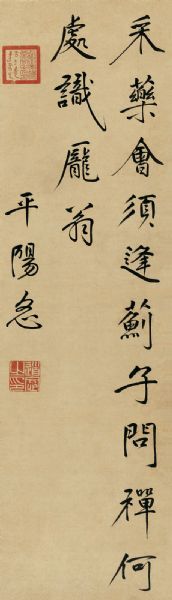 采藥會須逢薊子問禪何
處識龐翁
平陽忞